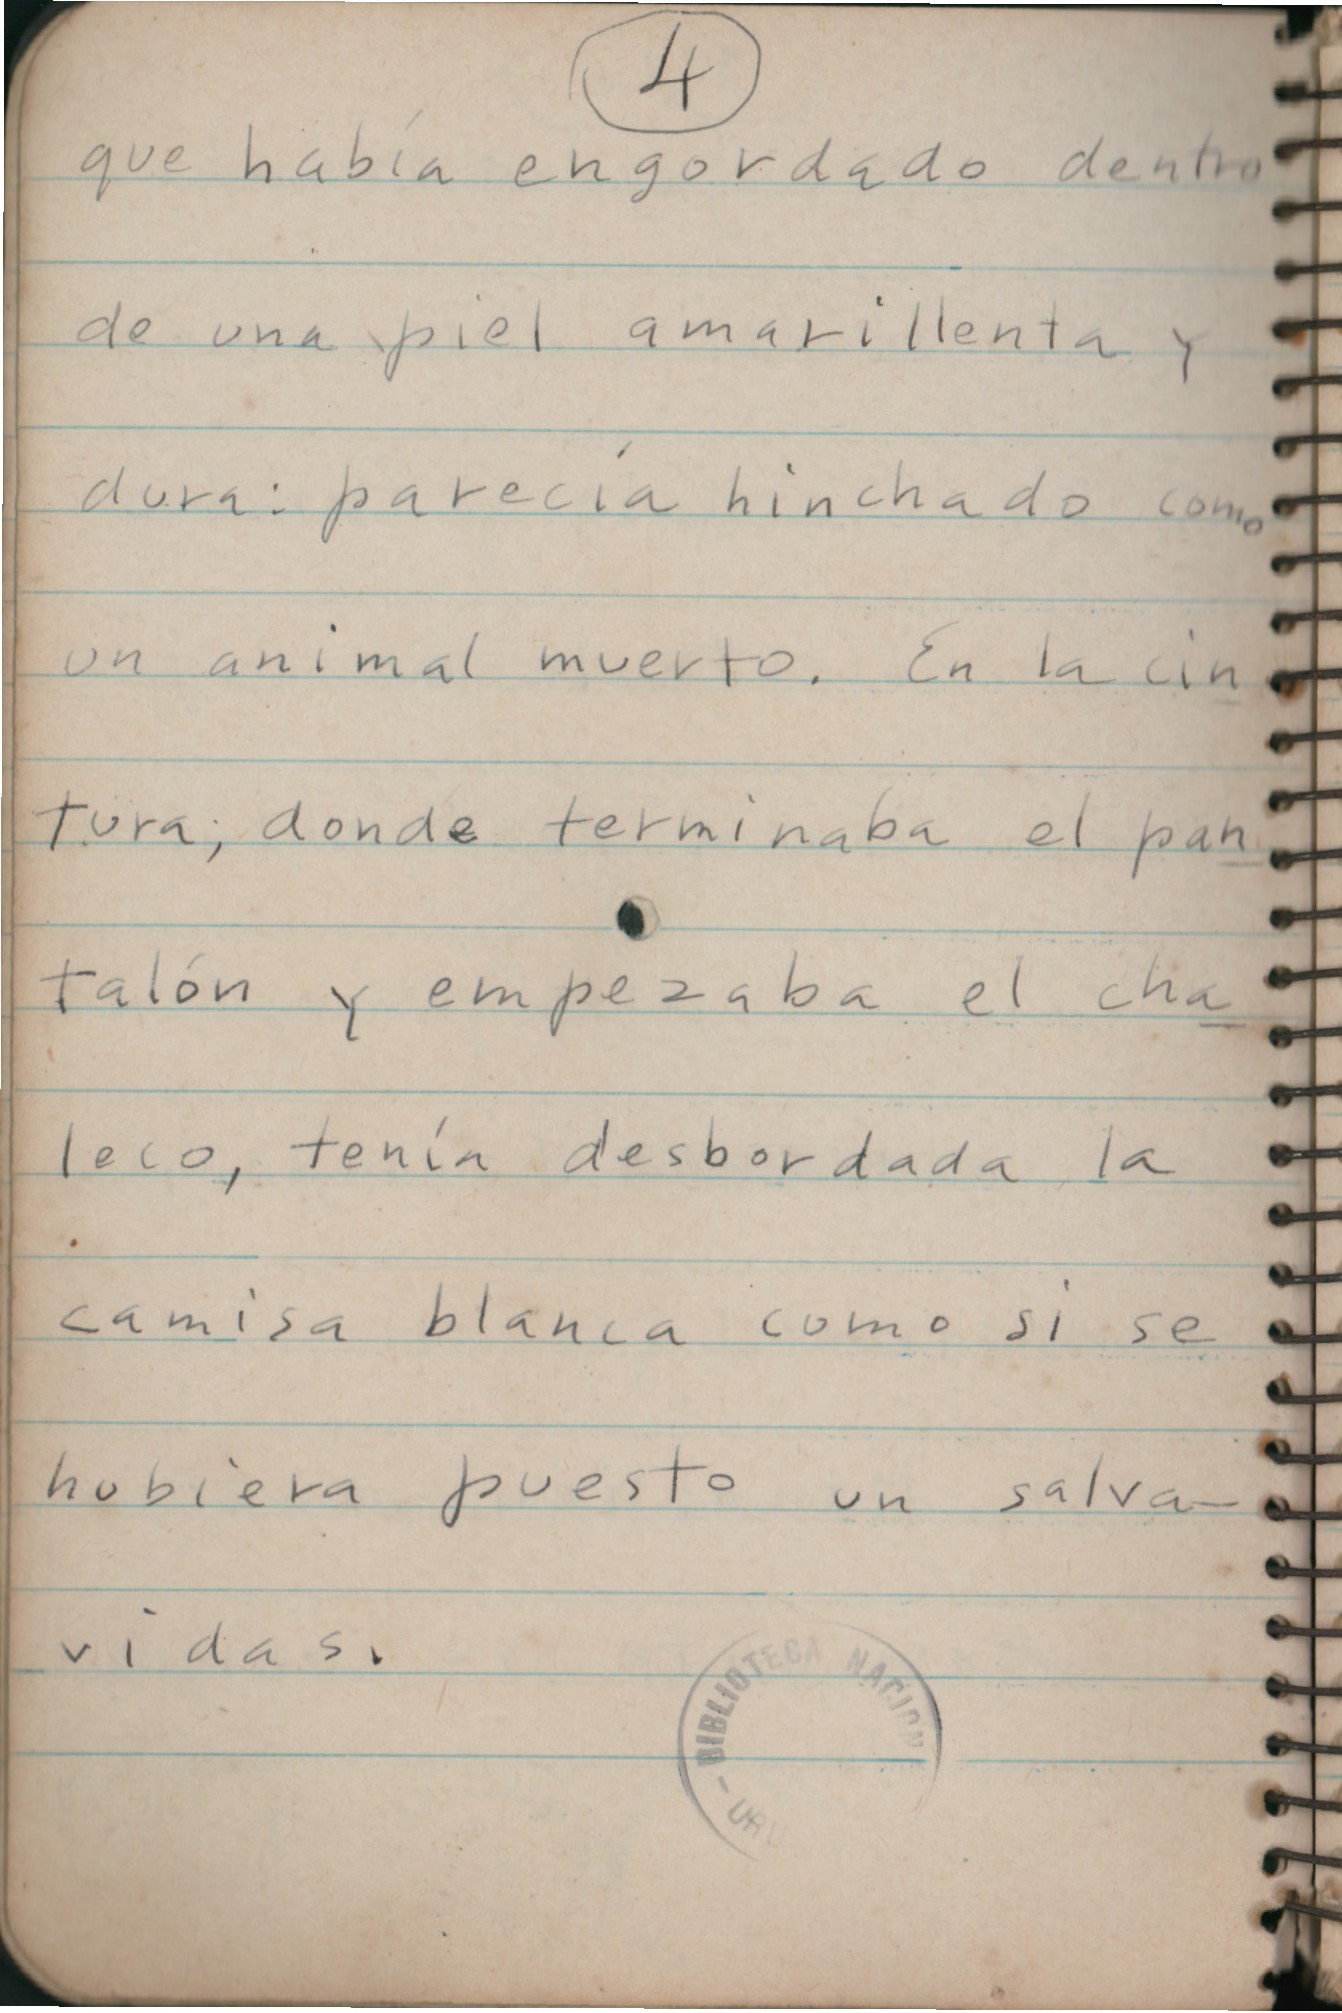 4
que había engordado dentro
de una piel amarillenta y
dura: parecía hinchado como
un animal muerto. En la cin
tura, donde terminaba el pan
talón y empezaba el cha
leco, tenía desbordada la
camisa blanca como si se
hubiera puesto un salva-
vidas.
BIBLIOTECA NACION
- URU